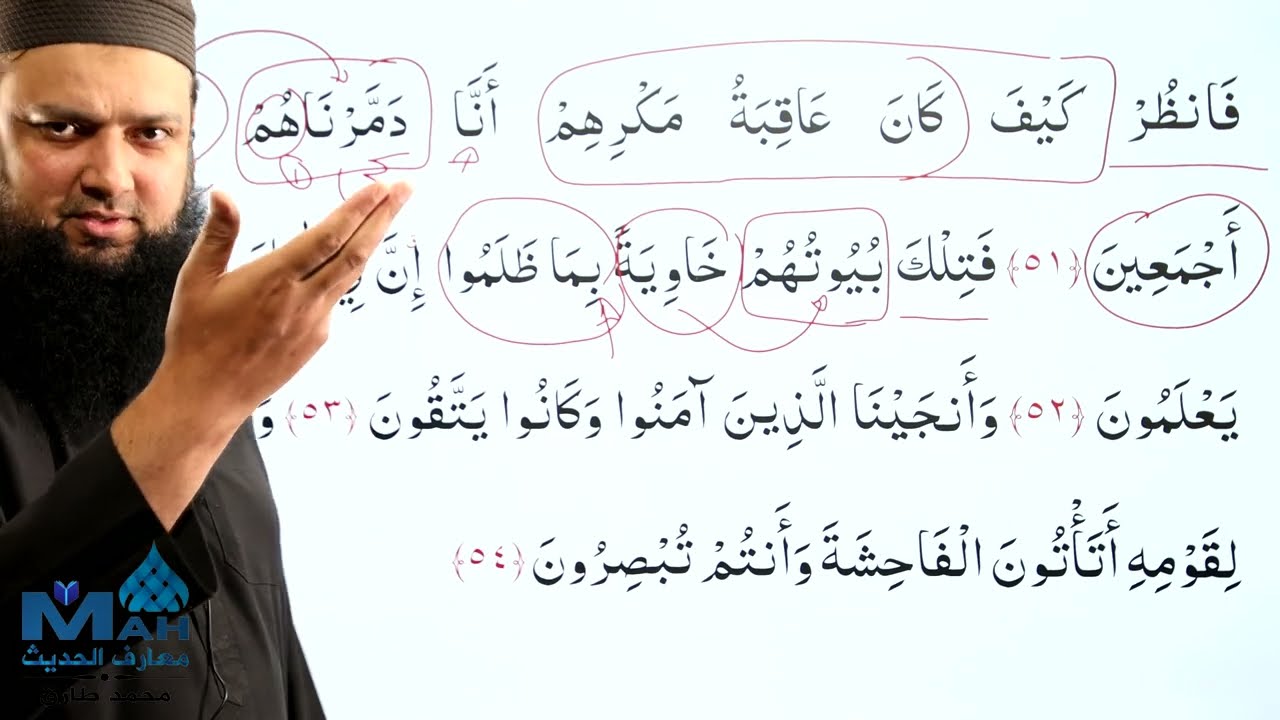 فَانظُرْ كَيْفَ كَانَ عَاقِبَةُ مَكْرِهِمْ أَنَّا دَمَّرْنَاهُمْ
أَجْمَعِينَ ﴿٥١﴾ فَتِلْكَ بُيُوتُهُمْ خَاوِيَةً بِمَا ظَلَمُوا إِنَّ
يَعْلَمُونَ ﴿٥٢﴾ وَأَنجَيْنَا الَّذِينَ آمَنُوا وَكَانُوا يَتَّقُونَ ﴿٥٣﴾
لِقَوْمِهِ أَتَأْتُونَ الْفَاحِشَةَ وَأَنتُمْ تُبْصِرُونَ ﴿٥٤﴾
MAH
معارف الحديث
محمد طارق